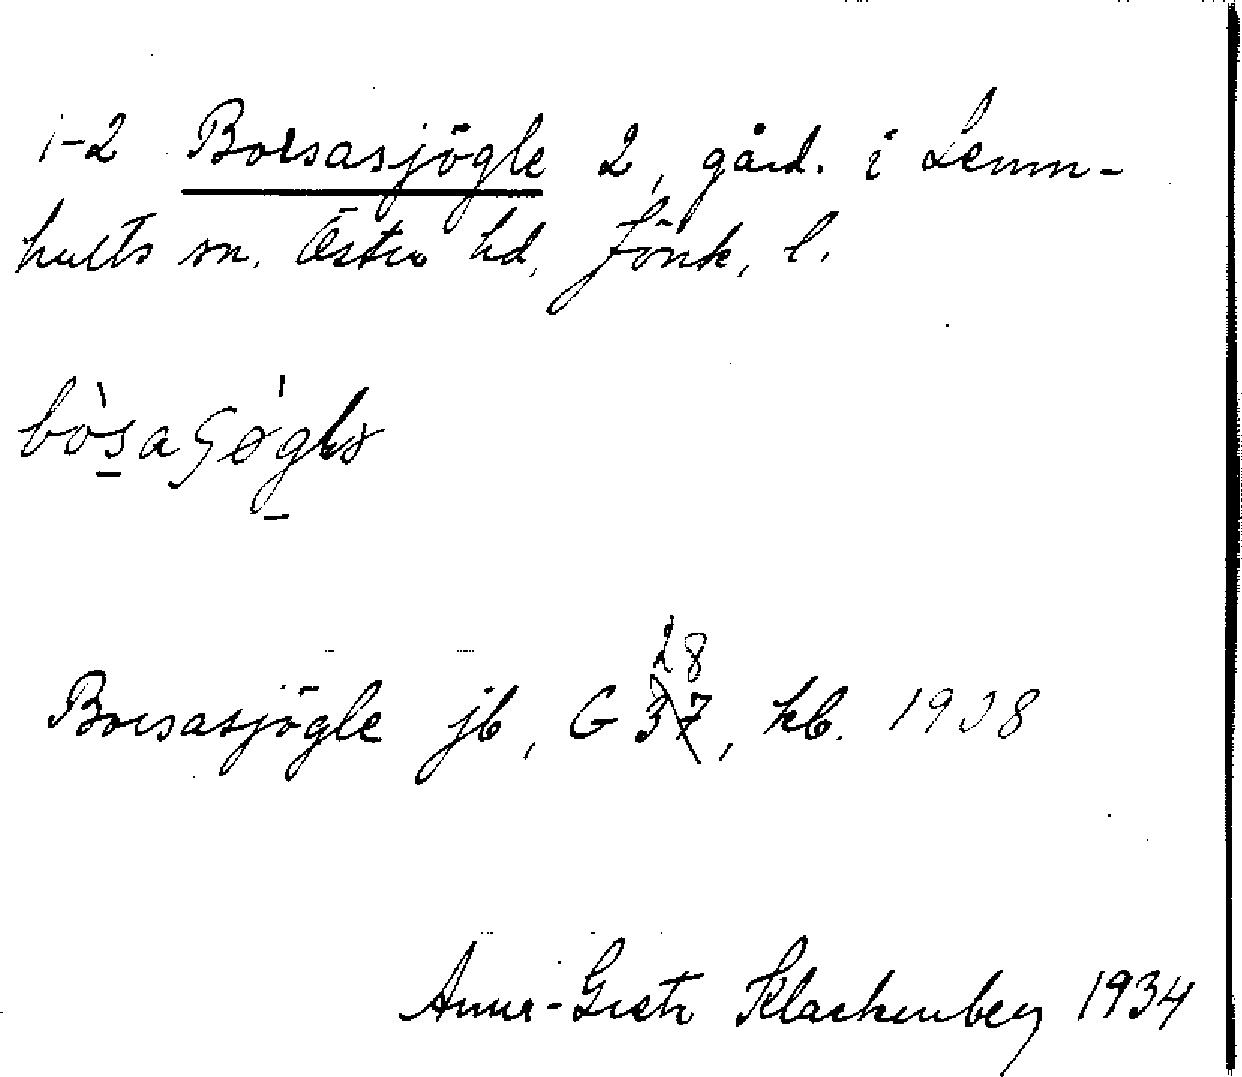 1-2 Borsasjögle 2, gård. i Lemn-
hults sn. Östra hd, Jönk. l.
bò̱saʃǿg̱lə
28
Borsasjögle jb, G 37, kb. 1938
Anna-Greta Klackenberg 1934